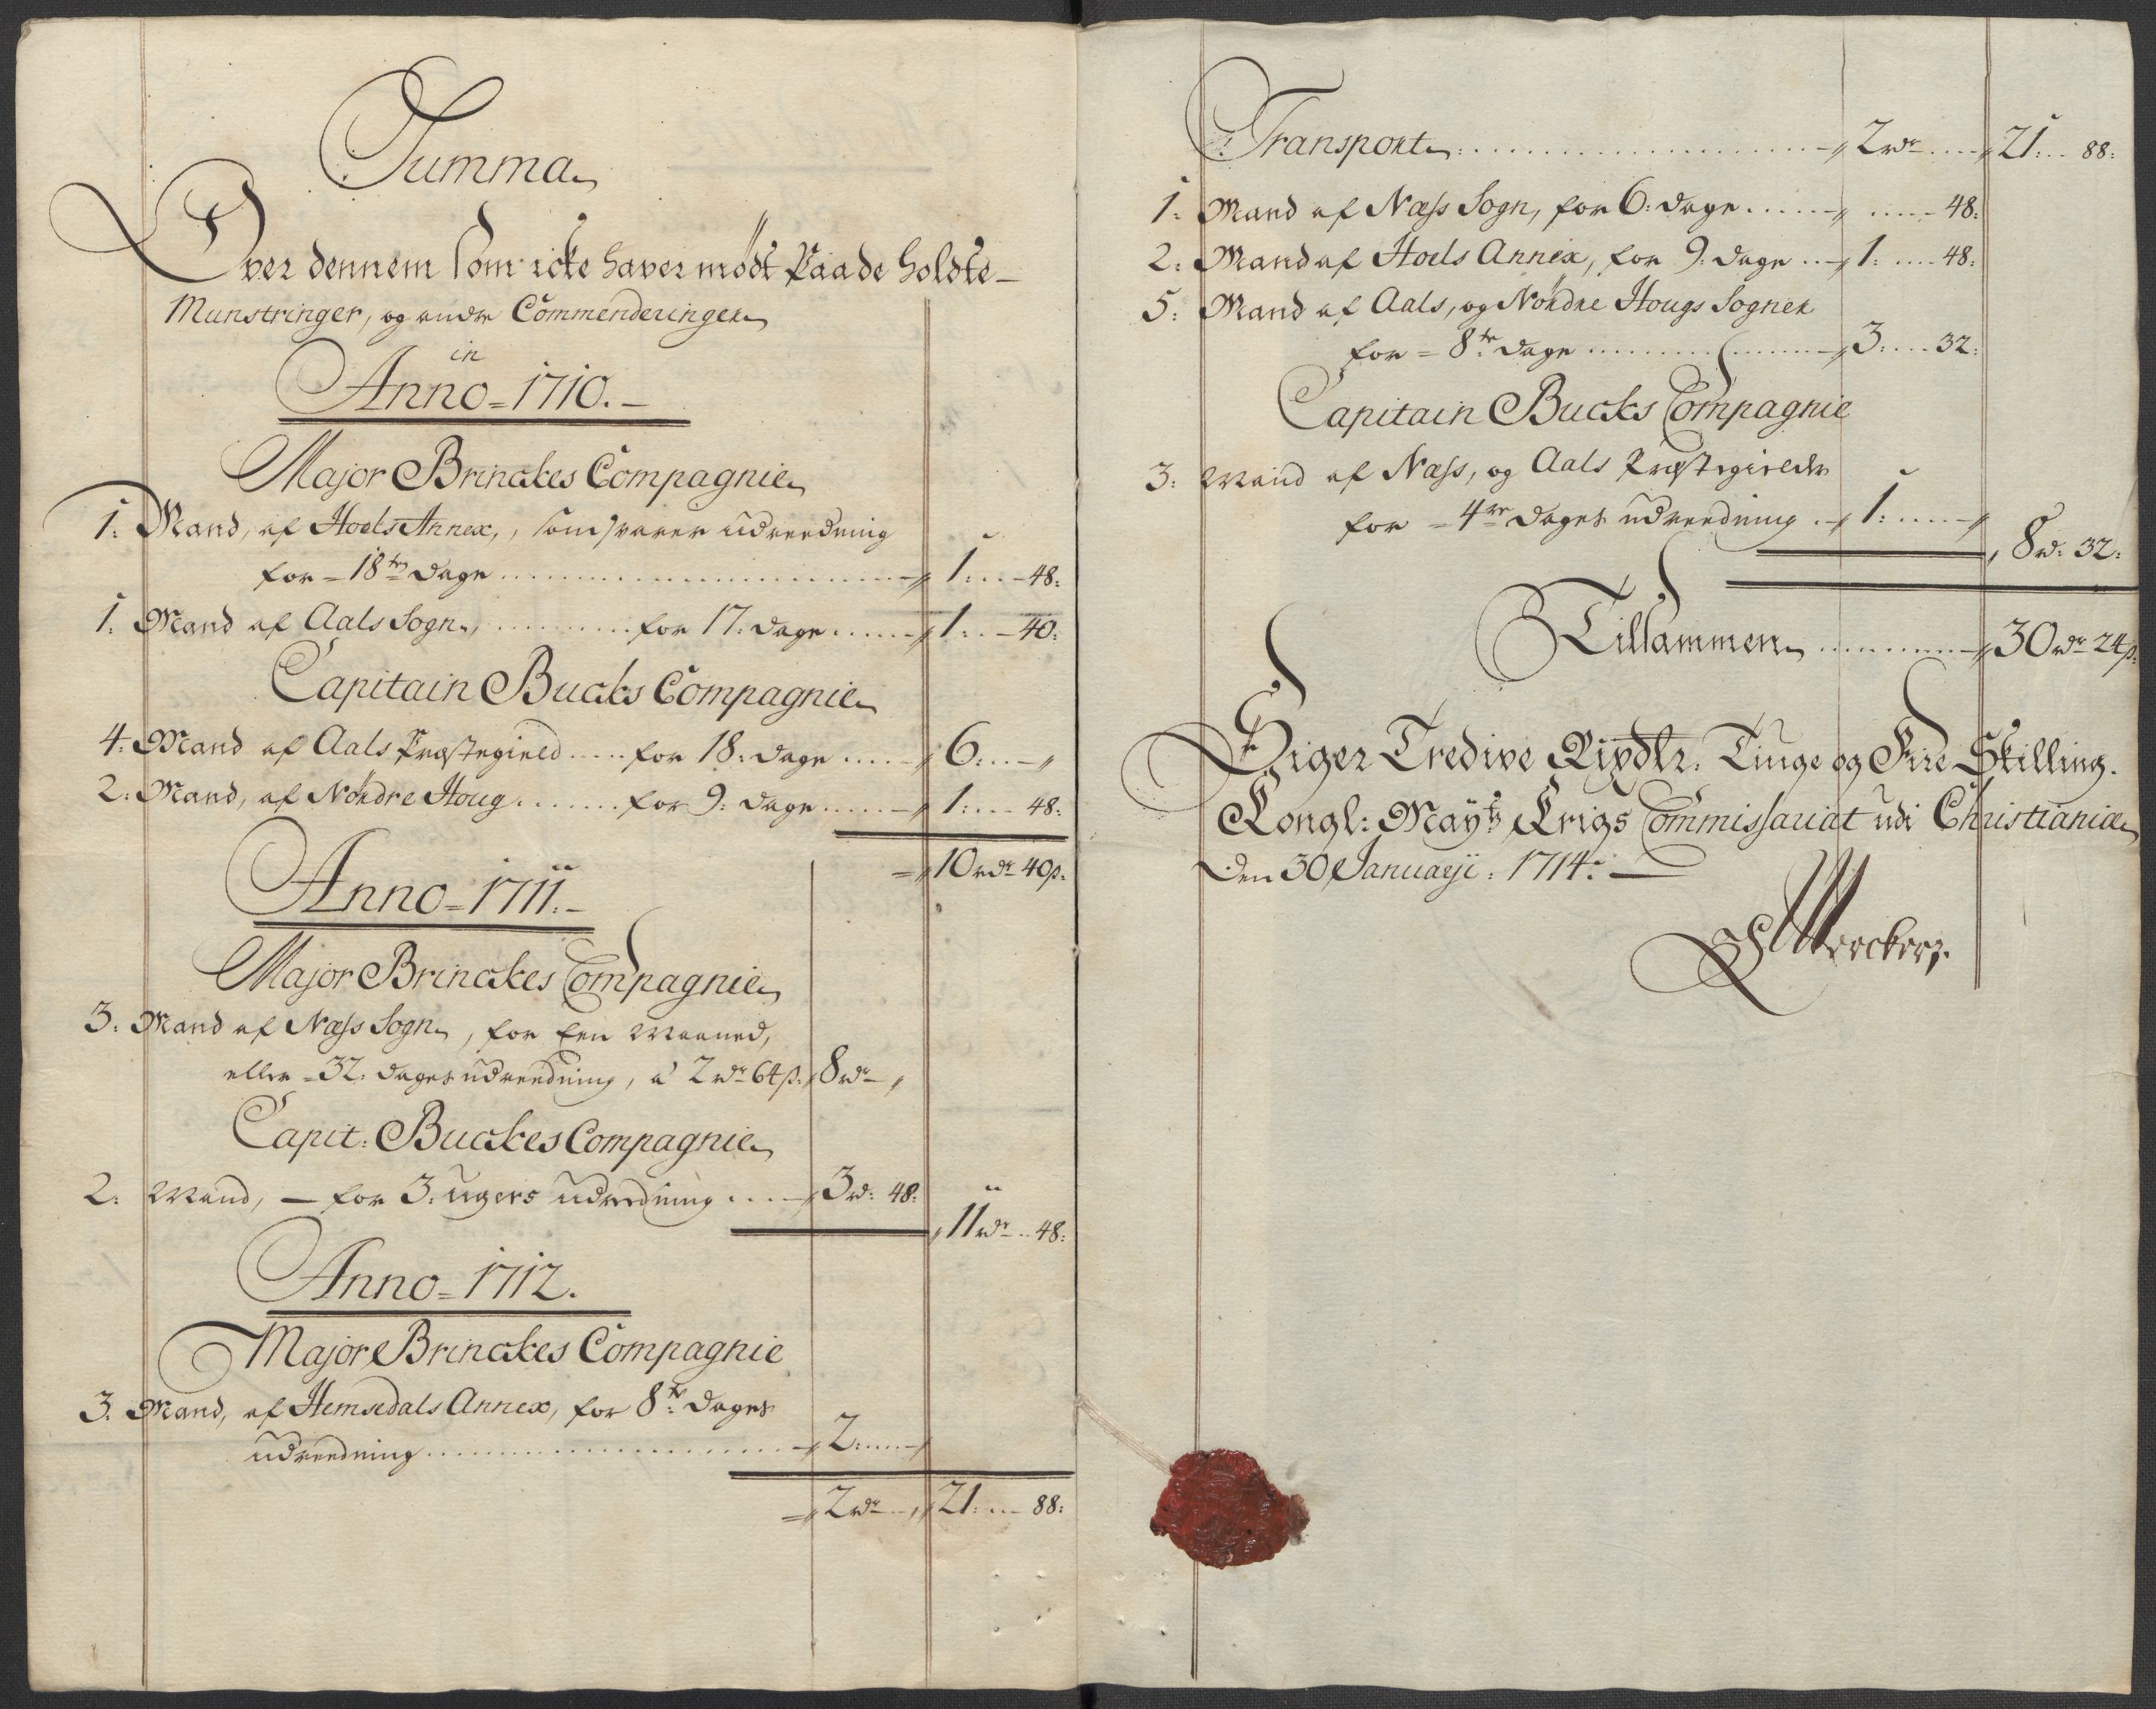 Summa
Over dennem som icke haver mödt paa de holdte
Munstringer, og andre Commenderinger
in
Anno = 1710. –
Major Brinckes Compagnie
1. Mand, af Hoels Annex, som svarer udreedning
for = 18ten dage ........ 1: ... 48:
1. Mand af Aals Sogn, ........ for 17: dage ...... 1: ... 40:
Capitain Bucks Compagnie
4. Mand af Aals Præstegield .... for 18: dage .... 6: ... „
2: Mand, af Nördre Houg ...... for 9: dage ...... 1: ... 48:
10 rdr 40 s.
Anno = 1711. –
Major Brinckes Compagnie
3: Mand af Næss Sogn, for Een Maaned,
eller = 32: dages udreedning, a 2 rdr 64 s. 8 rdr „
Capit: Buckes Compagnie
2: Mand, – for 3: ugers udreedning .... 3 rd: 48:
11 rdr .. 48:
Anno = 1712.
Major Brinckes Compagnie
3. Mand, af Hemsedals Annex, for 8te dages
udreedning ........ 2: ....
2 rdr .. „ 21: ... 88:
Transport ........ 2 rdr ... 21: ... 88:
1: Mand af Næss Sogn, for 6: dage ...... 48:
2: Mand af Hoels Annex, for 9: dage ... 1: ... 48:
5: Mand af Aals, og Nördre Hougs Sogner
for = 8te dage ........ 3: ... 32:
Capitain Bucks Compagnie
3: Mand af Næss, og Aals Præstegielder
for = 4re dages udreedning ... 1: ....
8 rd: 32:
Tillsammen ........ 30 rdr 24 s.
Siger Tredive Rixdlr. Tiuge og Fire Skilling.
Kongl: Mayts Krigs Commissariat udi Christiania
den 30 Januarji: 1714: –